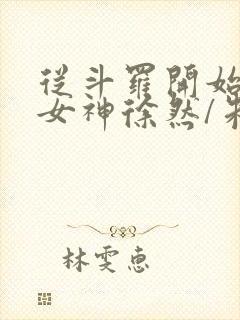 從斗羅開始
女神徐然/朱
林雯惠